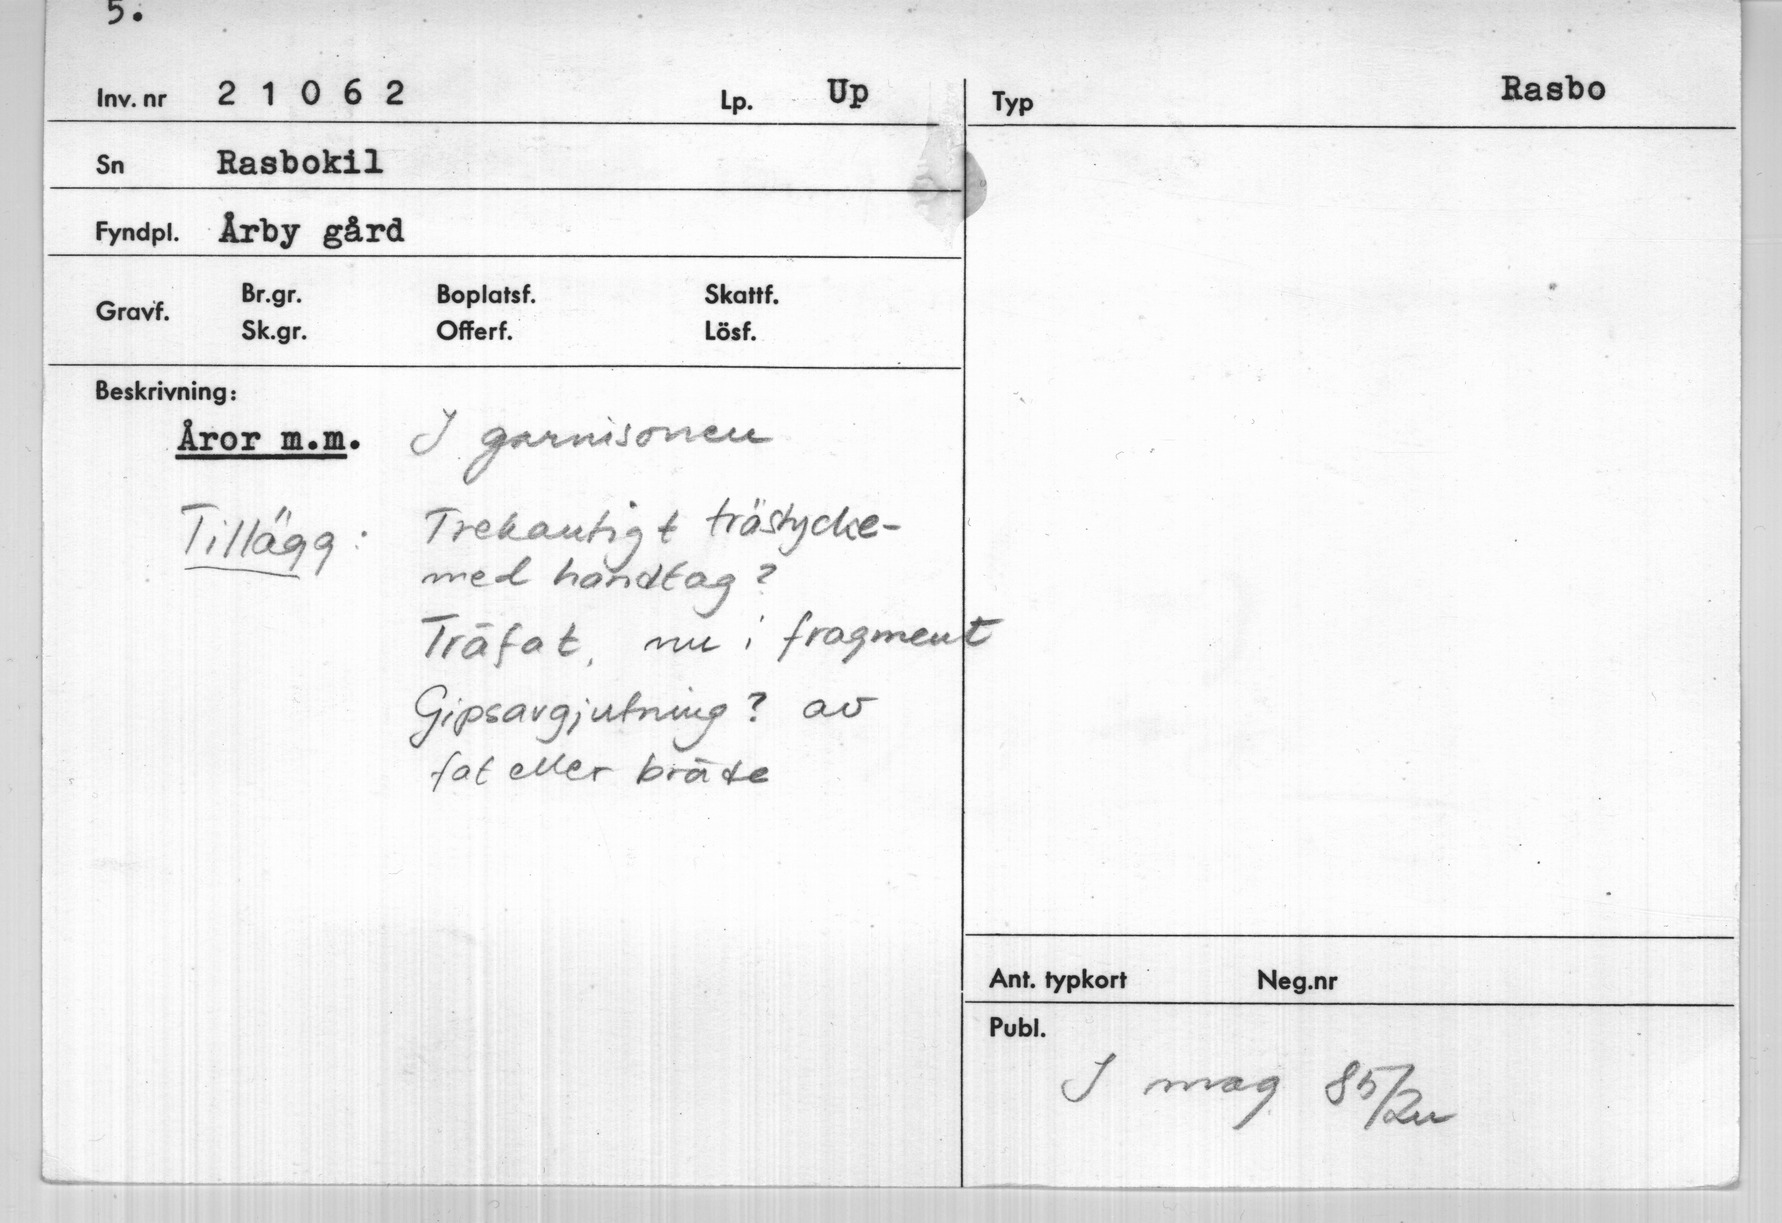 5.
Inv. nr 2 1 0 6 2 Lp. Up
Sn Rasbokil
Fyndpl. Årby gård
Gravf. Br.gr. Boplatsf. Skattf.
Sk.gr. Offerf. Lösf.
Beskrivning:
Åror m.m. I garnisonen
Tillägg: Trekantigt trästycke-
med handtag?
Träfat, nu i fragment
Gipsavgjutning? av
fat eller bräde
Typ Rasbo
Ant. typkort Neg.nr
Publ.
I mag 85/